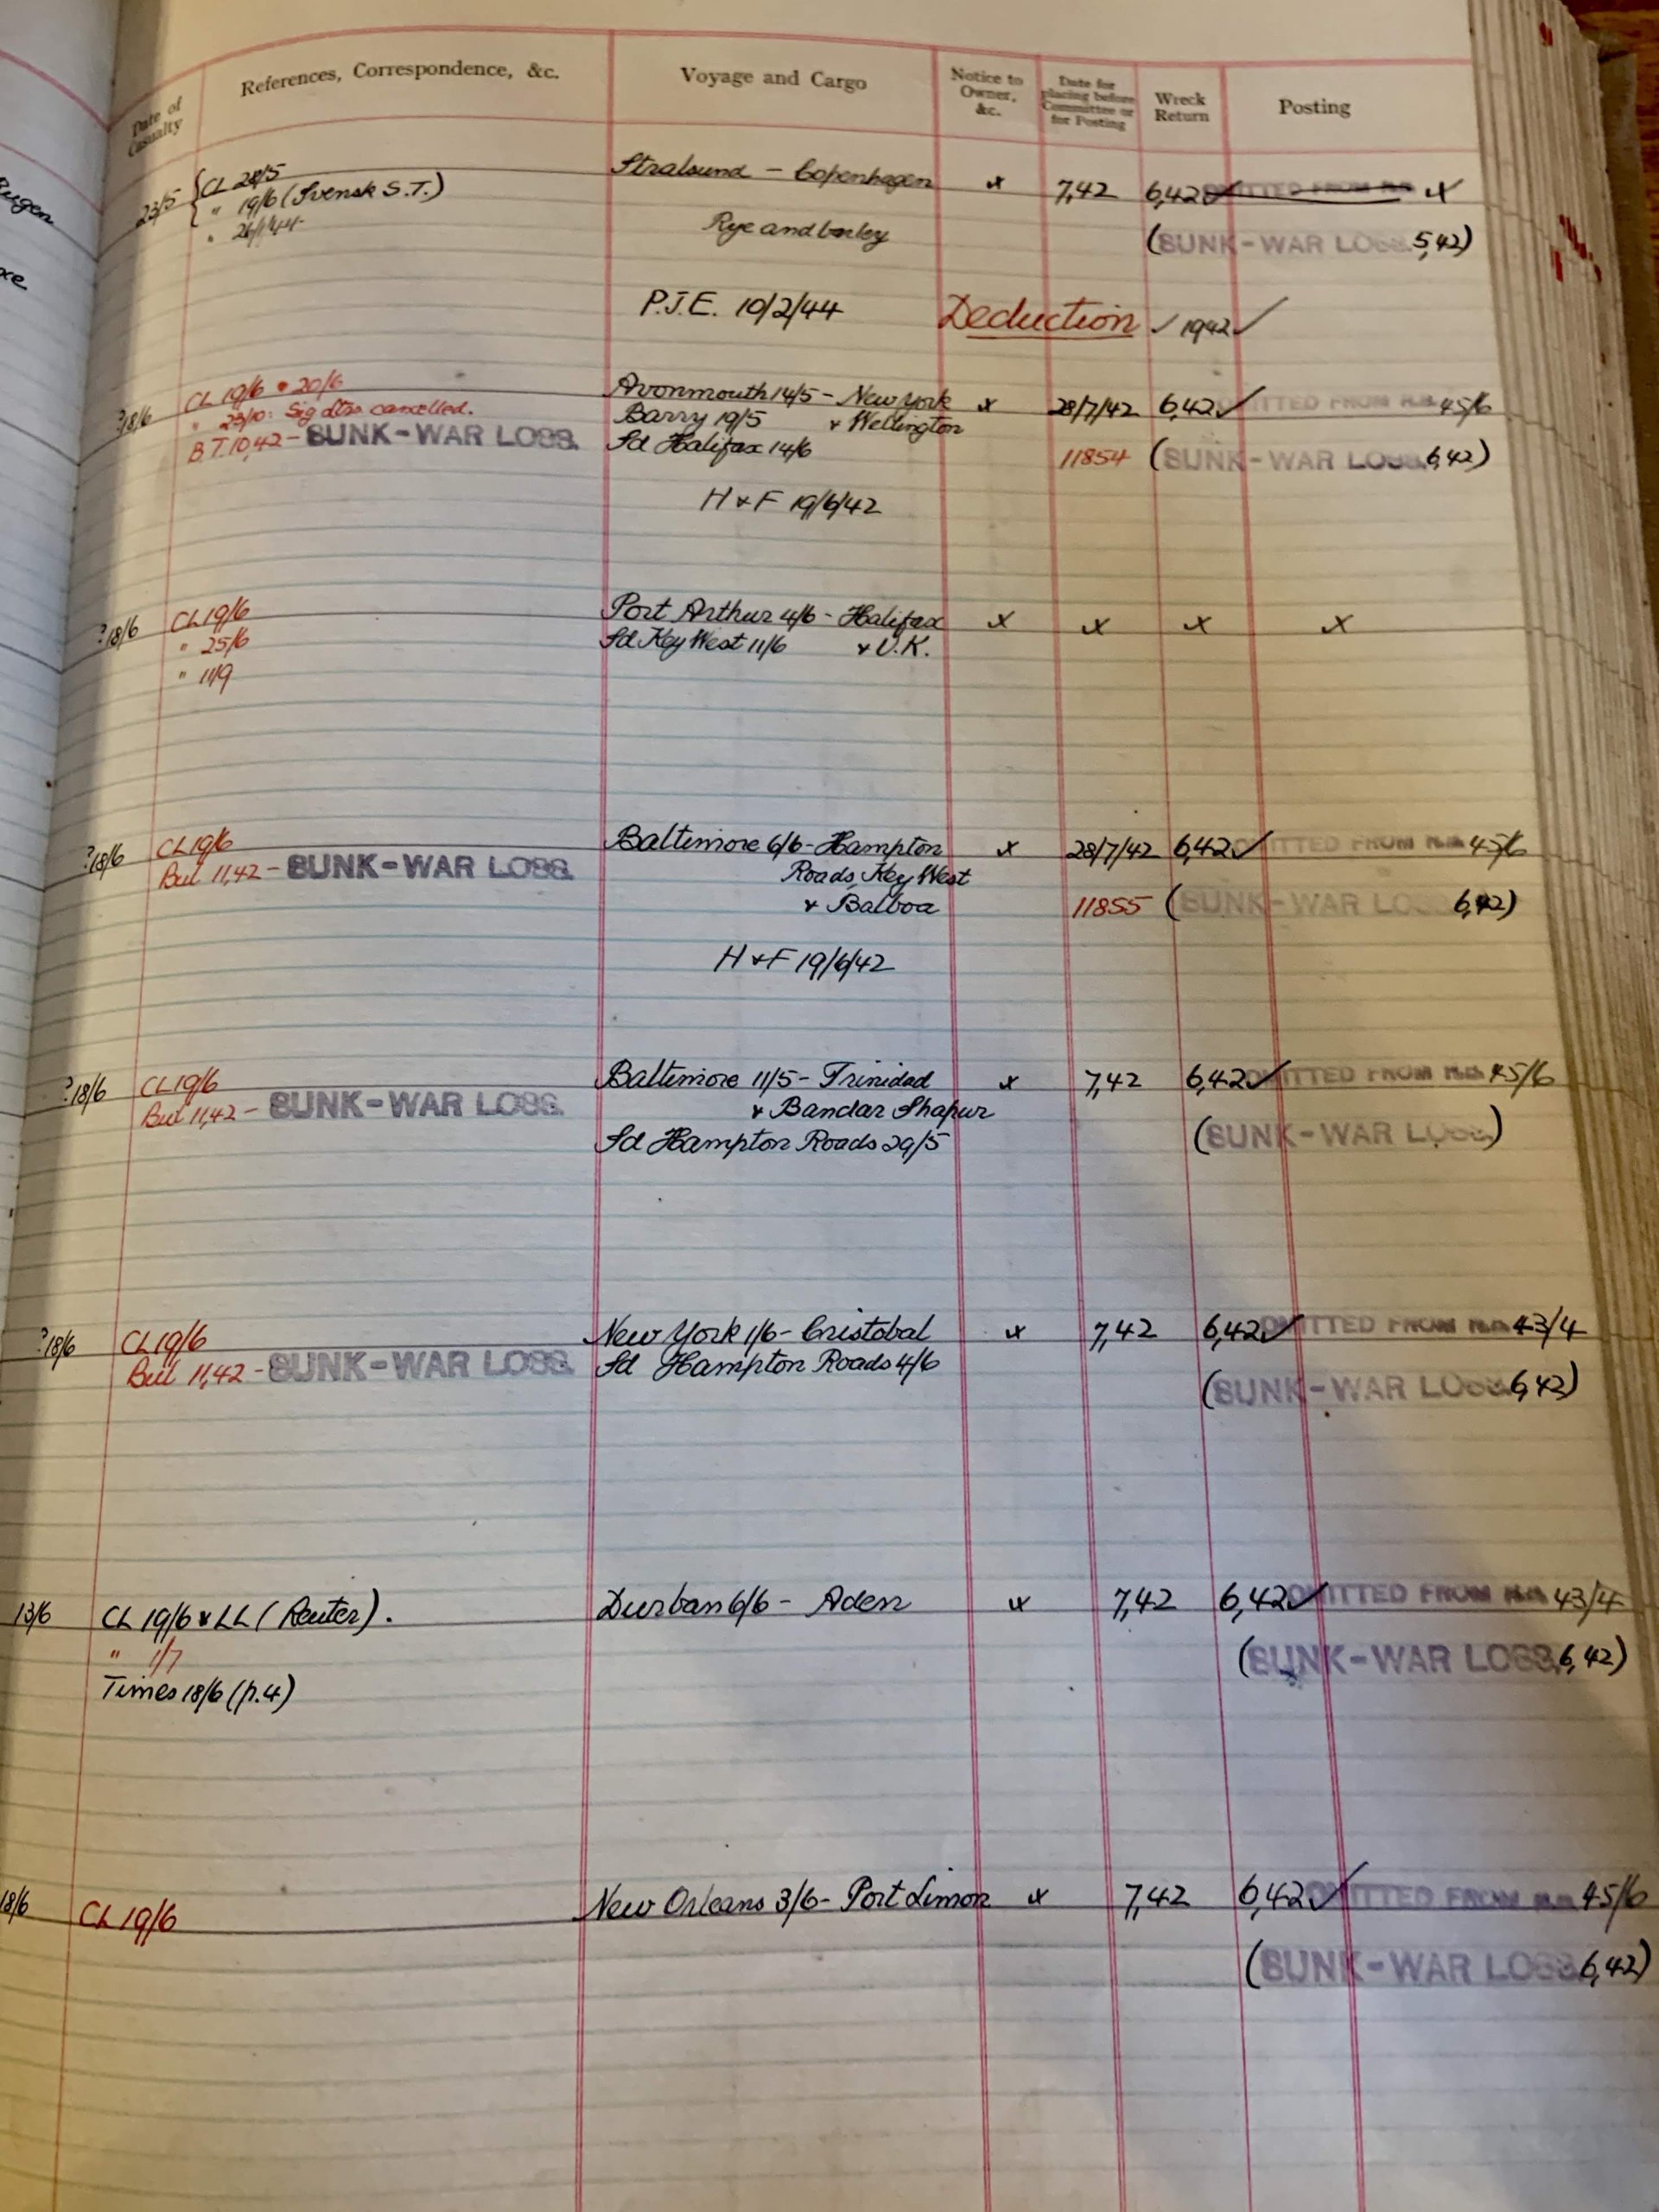 Date of Casualty
References, Correspondence, &c.
Voyage and Cargo
Notice to Owner, &c.
Date for placing before Committee or for Posting
Wreck Return
Posting
23/5 CL 28/5 Stralsund - Copenhagen x 7,42 6,42 ✓ OMITTED FROM x
" 19/6 (Svensk S.T.)
" 26/1/44 Rye and barley (SUNK-WAR LOSS. 5,42)
P.J.E. 10/2/44 Deduction ✓ 1942 ✓
?18/6 CL 19/6 • 20/6 Avonmouth 14/5 - New York x 28/7/42 6,42 ✓ OMITTED FROM 45/6
" 23/10: Sig dtrs cancelled. Barry 19/5 & Wellington
B.T. 10,42 - SUNK-WAR LOSS. Sd Halifax 14/6 11854 (SUNK-WAR LOSS. 6,42)
H & F 19/6/42
?18/6 CL 19/6 Port Arthur 4/6 - Halifax x x x x
" 25/6 Sd Key West 11/6 & U.K.
" 11/9
?18/6 CL 19/6 Baltimore 6/6 - Hampton x 28/7/42 6,42 ✓ OMITTED FROM 45/6
Bul 11,42 - SUNK-WAR LOSS. Roads, Key West
& Balboa 11855 (SUNK-WAR LOSS 6,42)
H & F 19/6/42
?18/6 CL 19/6 Baltimore 11/5 - Trinidad x 7,42 6,42 ✓ OMITTED FROM 45/6
Bul 11,42 - SUNK-WAR LOSS. & Bandar Shapur
Sd Hampton Roads 29/5 (SUNK-WAR LOSS)
?18/6 CL 19/6 New York 1/6 - Cristobal x 7,42 6,42 ✓ OMITTED FROM 43/4
Bul 11,42 - SUNK-WAR LOSS. Sd Hampton Roads 4/6
(SUNK-WAR LOSS. 6,42)
13/6 CL 19/6 & LL (Reuter). Durban 6/6 - Aden x 7,42 6,42 ✓ OMITTED FROM 43/4
" 1/7 (SUNK-WAR LOSS. 6,42)
Times 18/6 (p.4)
18/6 CL 19/6 New Orleans 3/6 - Port Limon x 7,42 6,42 ✓ OMITTED FROM 45/6
(SUNK-WAR LOSS. 6,42)